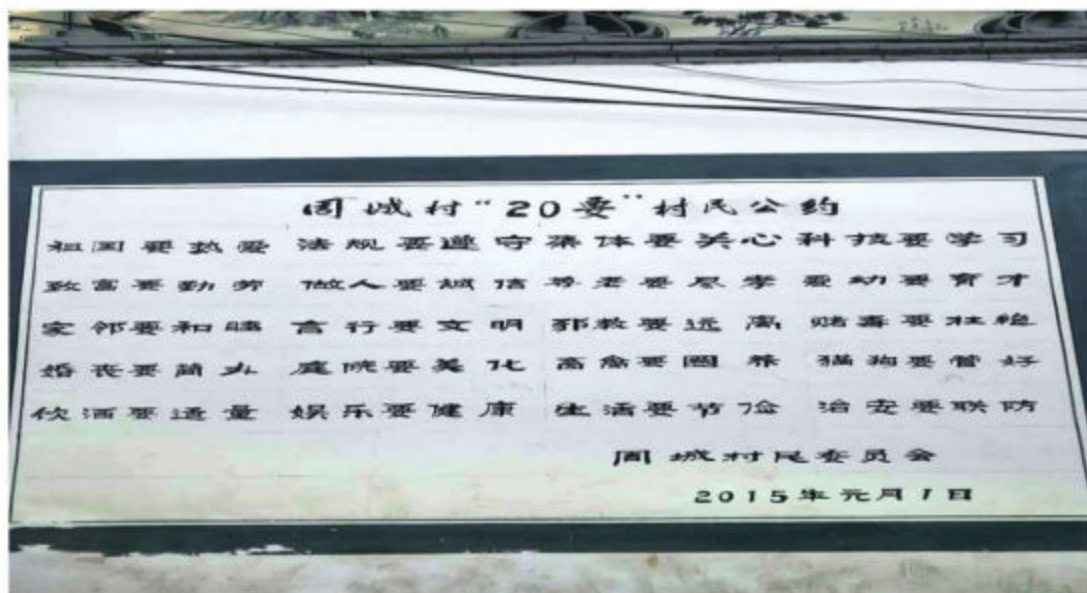 周城村“20要”村民公约
祖国要热爱 法规要遵守 集体要关心 科技要学习
致富要勤劳 做人要诚信 尊老要尽孝 爱幼要育才
家邻要和睦 言行要文明 邪教要远离 赌毒要杜绝
婚丧要简办 庭院要美化 畜禽要圈养 猫狗要管好
饮酒要适量 娱乐要健康 生活要节俭 治安要联防
周城村民委员会
2015年元月1日